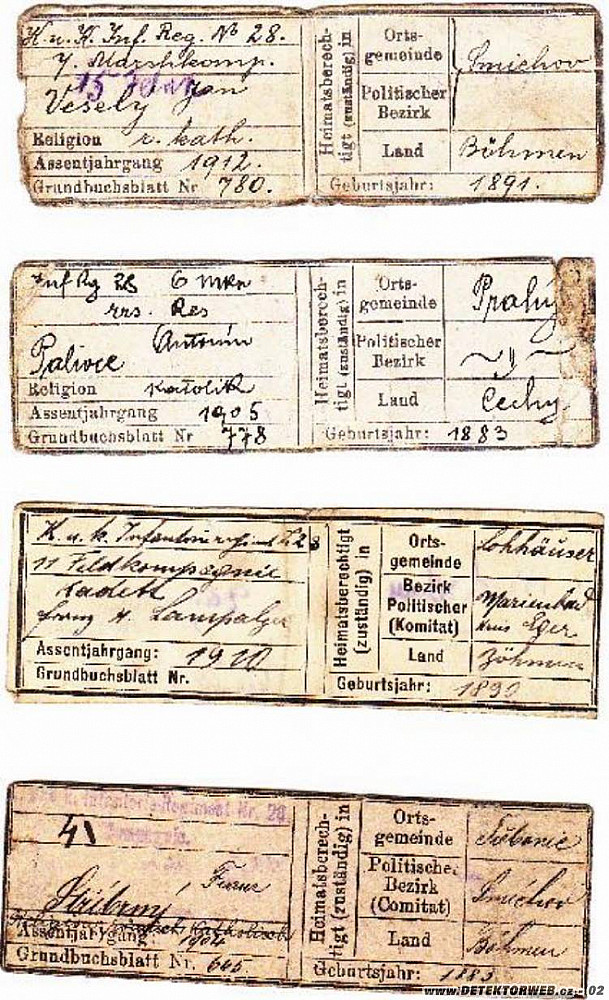 K. u. K. Inf. Reg. No 28.
7. Marshkomp.
15
Vesely Jan
Religion r. kath.
Assentjahrgang 1912.
Grundbuchsblatt Nr 780.
Heimatsberech-
tigt (zuständig) in
Orts-
gemeinde Smichov
Politischer
Bezirk
Land Böhmen
Geburtsjahr: 1891.
Inf Rg 28 6
Res
Antonín
Palivec
Religion Katolik
Assentjahrgang 1905
Grundbuchsblatt Nr 778
Heimatsberech-
tigt (zuständig) in
Orts-
gemeinde
Politischer
Bezirk
Land Čechy
Geburtsjahr: 1883
K. u. k. Infanterieregiment
11 Feldkompagnie
Kadett
Franz
Assentjahrgang: 1910
Grundbuchsblatt Nr.
Heimatsberechtigt
(zuständig) in
Orts-
gemeinde Lohhäuser
Bezirk
Politischer
(Komitat) Marienbad
Eger
Land Böhmen
Geburtsjahr:
Regiment Nr. 28
Assentjahrgang 1904
Grundbuchsblatt Nr. 605.
Heimatsberech-
tigt (zuständig) in
Orts-
gemeinde
Politischer
Bezirk
(Comitat) Smichov
Land Böhmen
Geburtsjahr: 1883
www.DETEKTORWEB.cz - 02